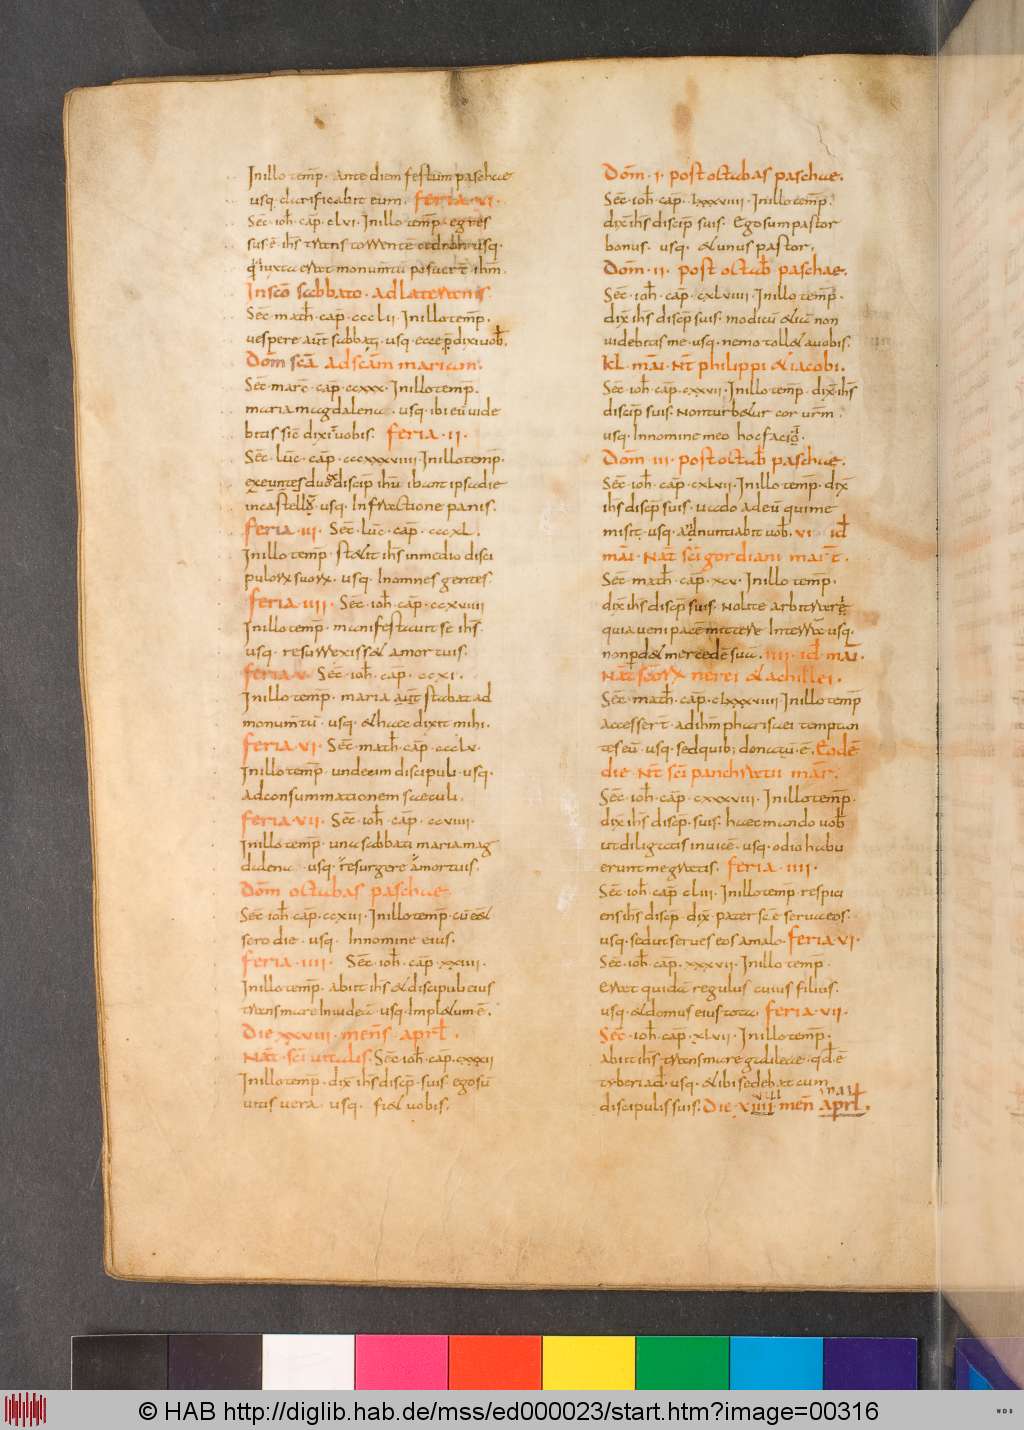 Inillo temp̄. Ante diem festum paschae
usq. clarificabit eum. feria. vi.
Sec̄. ioh̄. cap̄. clvi. Inillo temp̄. egres
sus. ē. ih̄s trans torrentē cedron usq.
iuxta erat monum̄tū posuer̄t ih̄m.
In sc̄o sabbato. ad lateranis.
Sec̄. math̄. cap̄. ccclii Inillotemp̄.
vespere aūt sabbati, usq. ecce p̄dixi vob̄.
Dom̄ sc̄a ad sc̄am mariam.
Sec̄. marc̄. cap̄. ccxxx. Inillotemp̄.
maria magdalena. usq. ibi eū vide
bitis sic̄ dixit vobis. feria. ii.
Sec̄. luc̄. cap̄. cccxxxviiii. Inillotemp̄.
exeuntes duo discip̄ ih̄u ibant ipsadie
incastellū. usq. Infractione panis.
feria. iii. Sec̄. luc̄. cap̄. cccxl.
Inillo temp̄. stetit ih̄s inmedio disci
pulorum suorum. usq. Inomnes gentes.
feria. iiii. Sec̄. ioh̄. cap̄. ccxviiii
Inillo temp̄. manifestavit se ih̄s.
usq. resurrexisset amortuis.
feria. v. Sec̄. ioh̄. cap̄. ccxi.
Inillo temp̄. maria aūt stabat ad
monum̄tū. usq. & haec dixit mihi.
feria. vi. Sec̄. math̄. cap̄. ccclv.
Inillo temp̄. undecim discipuli. usq.
adconsummationem saeculi.
feria. vii. Sec̄. ioh̄. cap̄. ccviiii.
Inillo temp̄. una sabbati maria mag
dalena. usq. resurgere amortuis.
Dom̄ octabas paschae.
Sec̄. ioh̄. cap̄. ccxiii. Inillotemp̄. cū eēt
sero die. usq. Innomine eius.
feria. iiii. Sec̄. ioh̄. cap̄. xxiiii.
Inillotemp̄. abiit ih̄s & discipuli eius
transmare Iniudeā. usq. Impletum ē.
Die xxviii. mens̄. aprl̄.
Nat̄. sc̄i vitalis. Sec̄. ioh̄. cap. cxxxii
Inillotemp̄. dix̄ ih̄s discip̄. suis egosū
vitis vera. usq. fiet vobis.
Dom̄. i. post octabas paschae.
Sec̄. ioh̄. cap̄. lxxxviiii. Inillo temp̄.
dix̄ ih̄s discip̄ suis. Egosum pastor
bonus. usq. & unus pastor.
Dom̄. ii. post octab̄ paschae.
Sec̄. ioh̄. cap̄. cxlviiii. Inillo temp̄.
dix̄ ih̄s discip̄ suis. modicū & iā non
videbitis me. usq. nemo tollet avobis.
KL. mai. Nt̄ philippi & iacobi.
Sec̄. ioh̄. cap̄. cxxvii. Inillo temp̄. dix̄ ih̄s
discip̄ suis. Non turbetur cor vrm̄.
usq. Innomine meo hoc faciā.
Dom̄. iii. post octab̄ paschae.
Sec̄. ioh̄. cap̄. cxlvii. Inillo temp̄. dix̄
ih̄s discip̄ suis. vado adeū qui me
misit. usq. adnuntiabit vob̄. vi. id̄
mai. Nat̄ sc̄i gordiani mart̄.
Sec̄. math̄. cap̄. xcv. Inillo temp̄.
dix̄ ih̄s discip̄ suis. Nolite arbitrari
quia veni pacē mittere Interrā usq.
non pdet mercedē suā. iiii. id̄ mai.
Nat̄ sc̄orum nerei & achillei.
Sec̄. math̄. cap̄. clxxxviiii Inillo temp̄
accesser̄t. ad ih̄m pharisaei temptan
tes eū. usq. sed quib; donatū. ē. Eodē
die. Nt̄ sc̄i panchratii mar̄.
Sec̄. ioh̄. cap̄. cxxxviii. Inillotemp̄.
dix̄ ih̄s discip̄. suis. haec mando vob̄
ut diligatis invicē. usq. odio habu
erunt me gratis. feria. iiii.
Sec̄. ioh̄. cap̄ cliii. Inillo temp̄ respici
ens ih̄s discip̄. dix̄. pater sc̄e serva eos.
usq. sed ut serves eos a malo. feria. vi.
Sec̄. ioh̄. cap̄. xxxvii. Inillo temp̄.
erat quidā regulus cuius filius.
usq. & domus eius tota. feria. vii.
Sec̄. ioh̄. cap̄. xlvii. Inillo temp̄.
abiit ih̄s transmare galileae. qd̄ ē
tyberiad̄. usq. & ibi sedebat cum
discipulis suis. Die. xiiii men̄ aprl̄.
© HAB http://diglib.hab.de/mss/ed000023/start.htm?image=00316